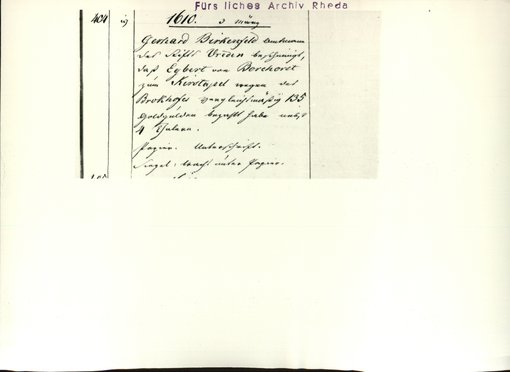 Fürs liches Archiv Rheda
404
1610. 3 März
Gerhard Birkenfeld Amtmann
des Stifts Vreden bescheinigt,
daß Egbert von Berchorst
zum Kerstapel wegen des
Brokhofes vergleichsmäßig 135
Goldgulden bezahlt habe nebst
4 Thalern.
Papier. Unterschrift.
Siegel: brach unter Papier.